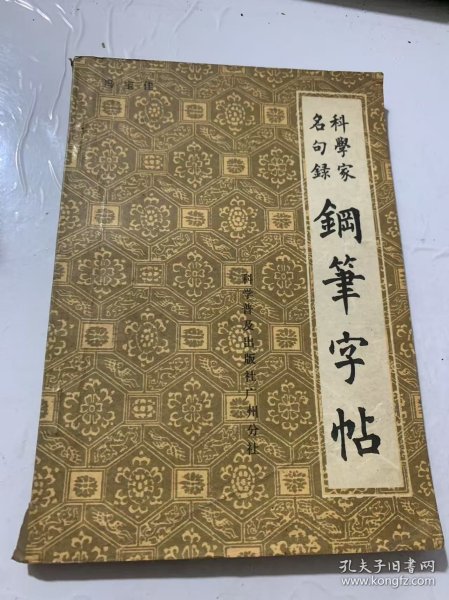 科學家
名句錄
鋼筆字帖
科学普及出版社广州分社
冯宝佳
孔夫子旧书网
www.kongfz.com